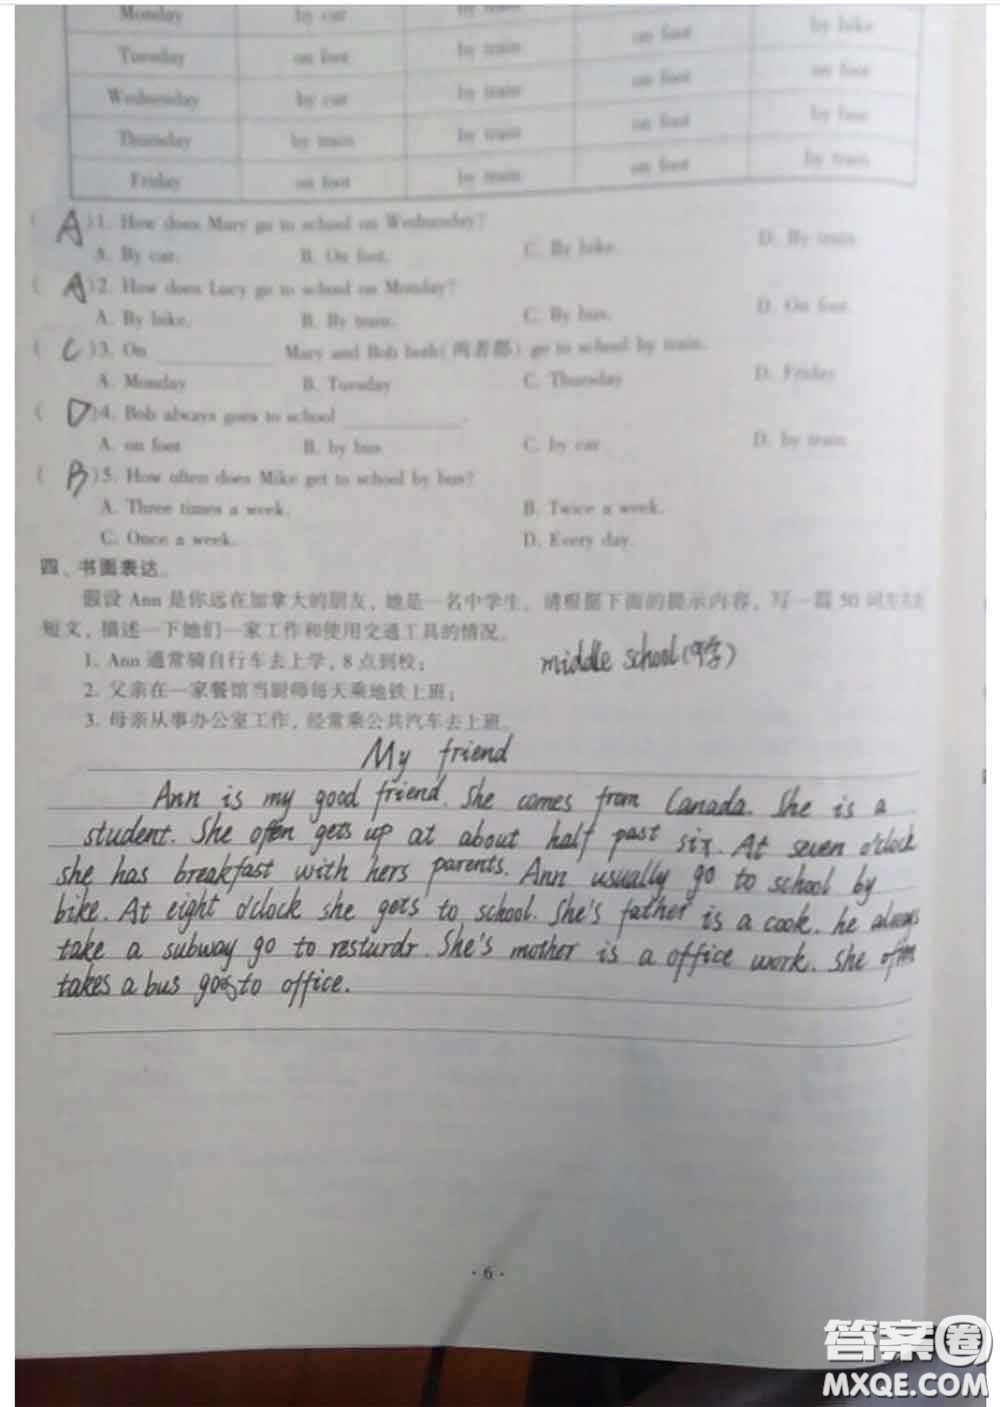 Monday by car by train on foot by bike
Tuesday on foot by train on foot on foot
Wednesday by car by train on foot by bus
Thursday by train by train on foot by train
Friday on foot by train
( A )1. How does Mary go to school on Wednesday?
A. By car. B. On foot. C. By bike. D. By train.
( A )2. How does Lucy go to school on Monday?
A. By bike. B. By train. C. By bus. D. On foot.
( C )3. On Mary and Bob both(两者都) go to school by train.
A. Monday B. Tuesday C. Thursday D. Friday
( D )4. Bob always goes to school .
A. on foot B. by bus C. by car D. by train
( B )5. How often does Mike get to school by bus?
A. Three times a week. B. Twice a week.
C. Once a week. D. Every day.
四、书面表达。
假设 Ann 是你远在加拿大的朋友，她是一名中学生。请根据下面的提示内容，写一篇 50 词左右的
短文，描述一下她们一家工作和使用交通工具的情况。
1. Ann 通常骑自行车去上学，8 点到校； middle school(中学)
2. 父亲在一家餐馆当厨师每天乘地铁上班；
3. 母亲从事办公室工作，经常乘公共汽车去上班。
My friend
Ann is my good friend. She comes from Canada. She is a
student. She often gets up at about half past six. At seven o'clock
she has breakfast with hers parents. Ann usually go to school by
bike. At eight o'clock she gets to school. She's father is a cook. he always
take a subway go to resturdr. She's mother is a office work. She often
takes a bus goes to office.
· 6 ·
答案圈
MXQE.COM